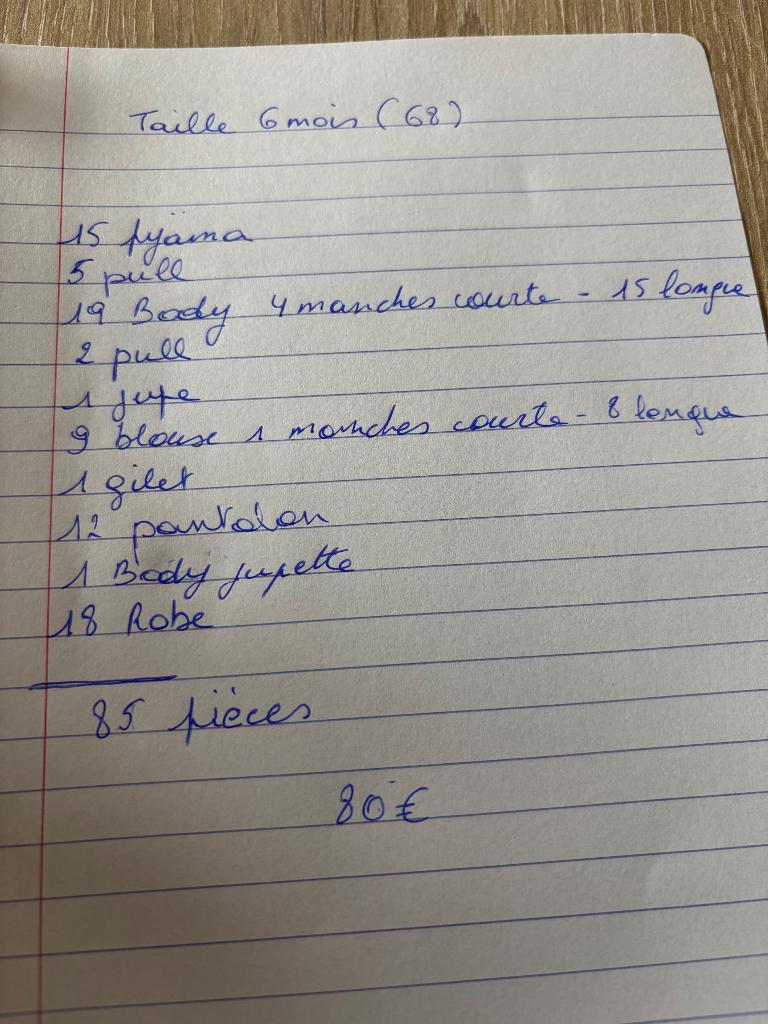 Taille 6 mois (68)
15 pyjama
5 pull
19 Body 4 manches courte - 15 longue
2 pull
1 jupe
9 blouse 1 manches courte - 8 longue
1 gilet
12 pantalon
1 Body jupette
18 Robe
85 pièces
80€